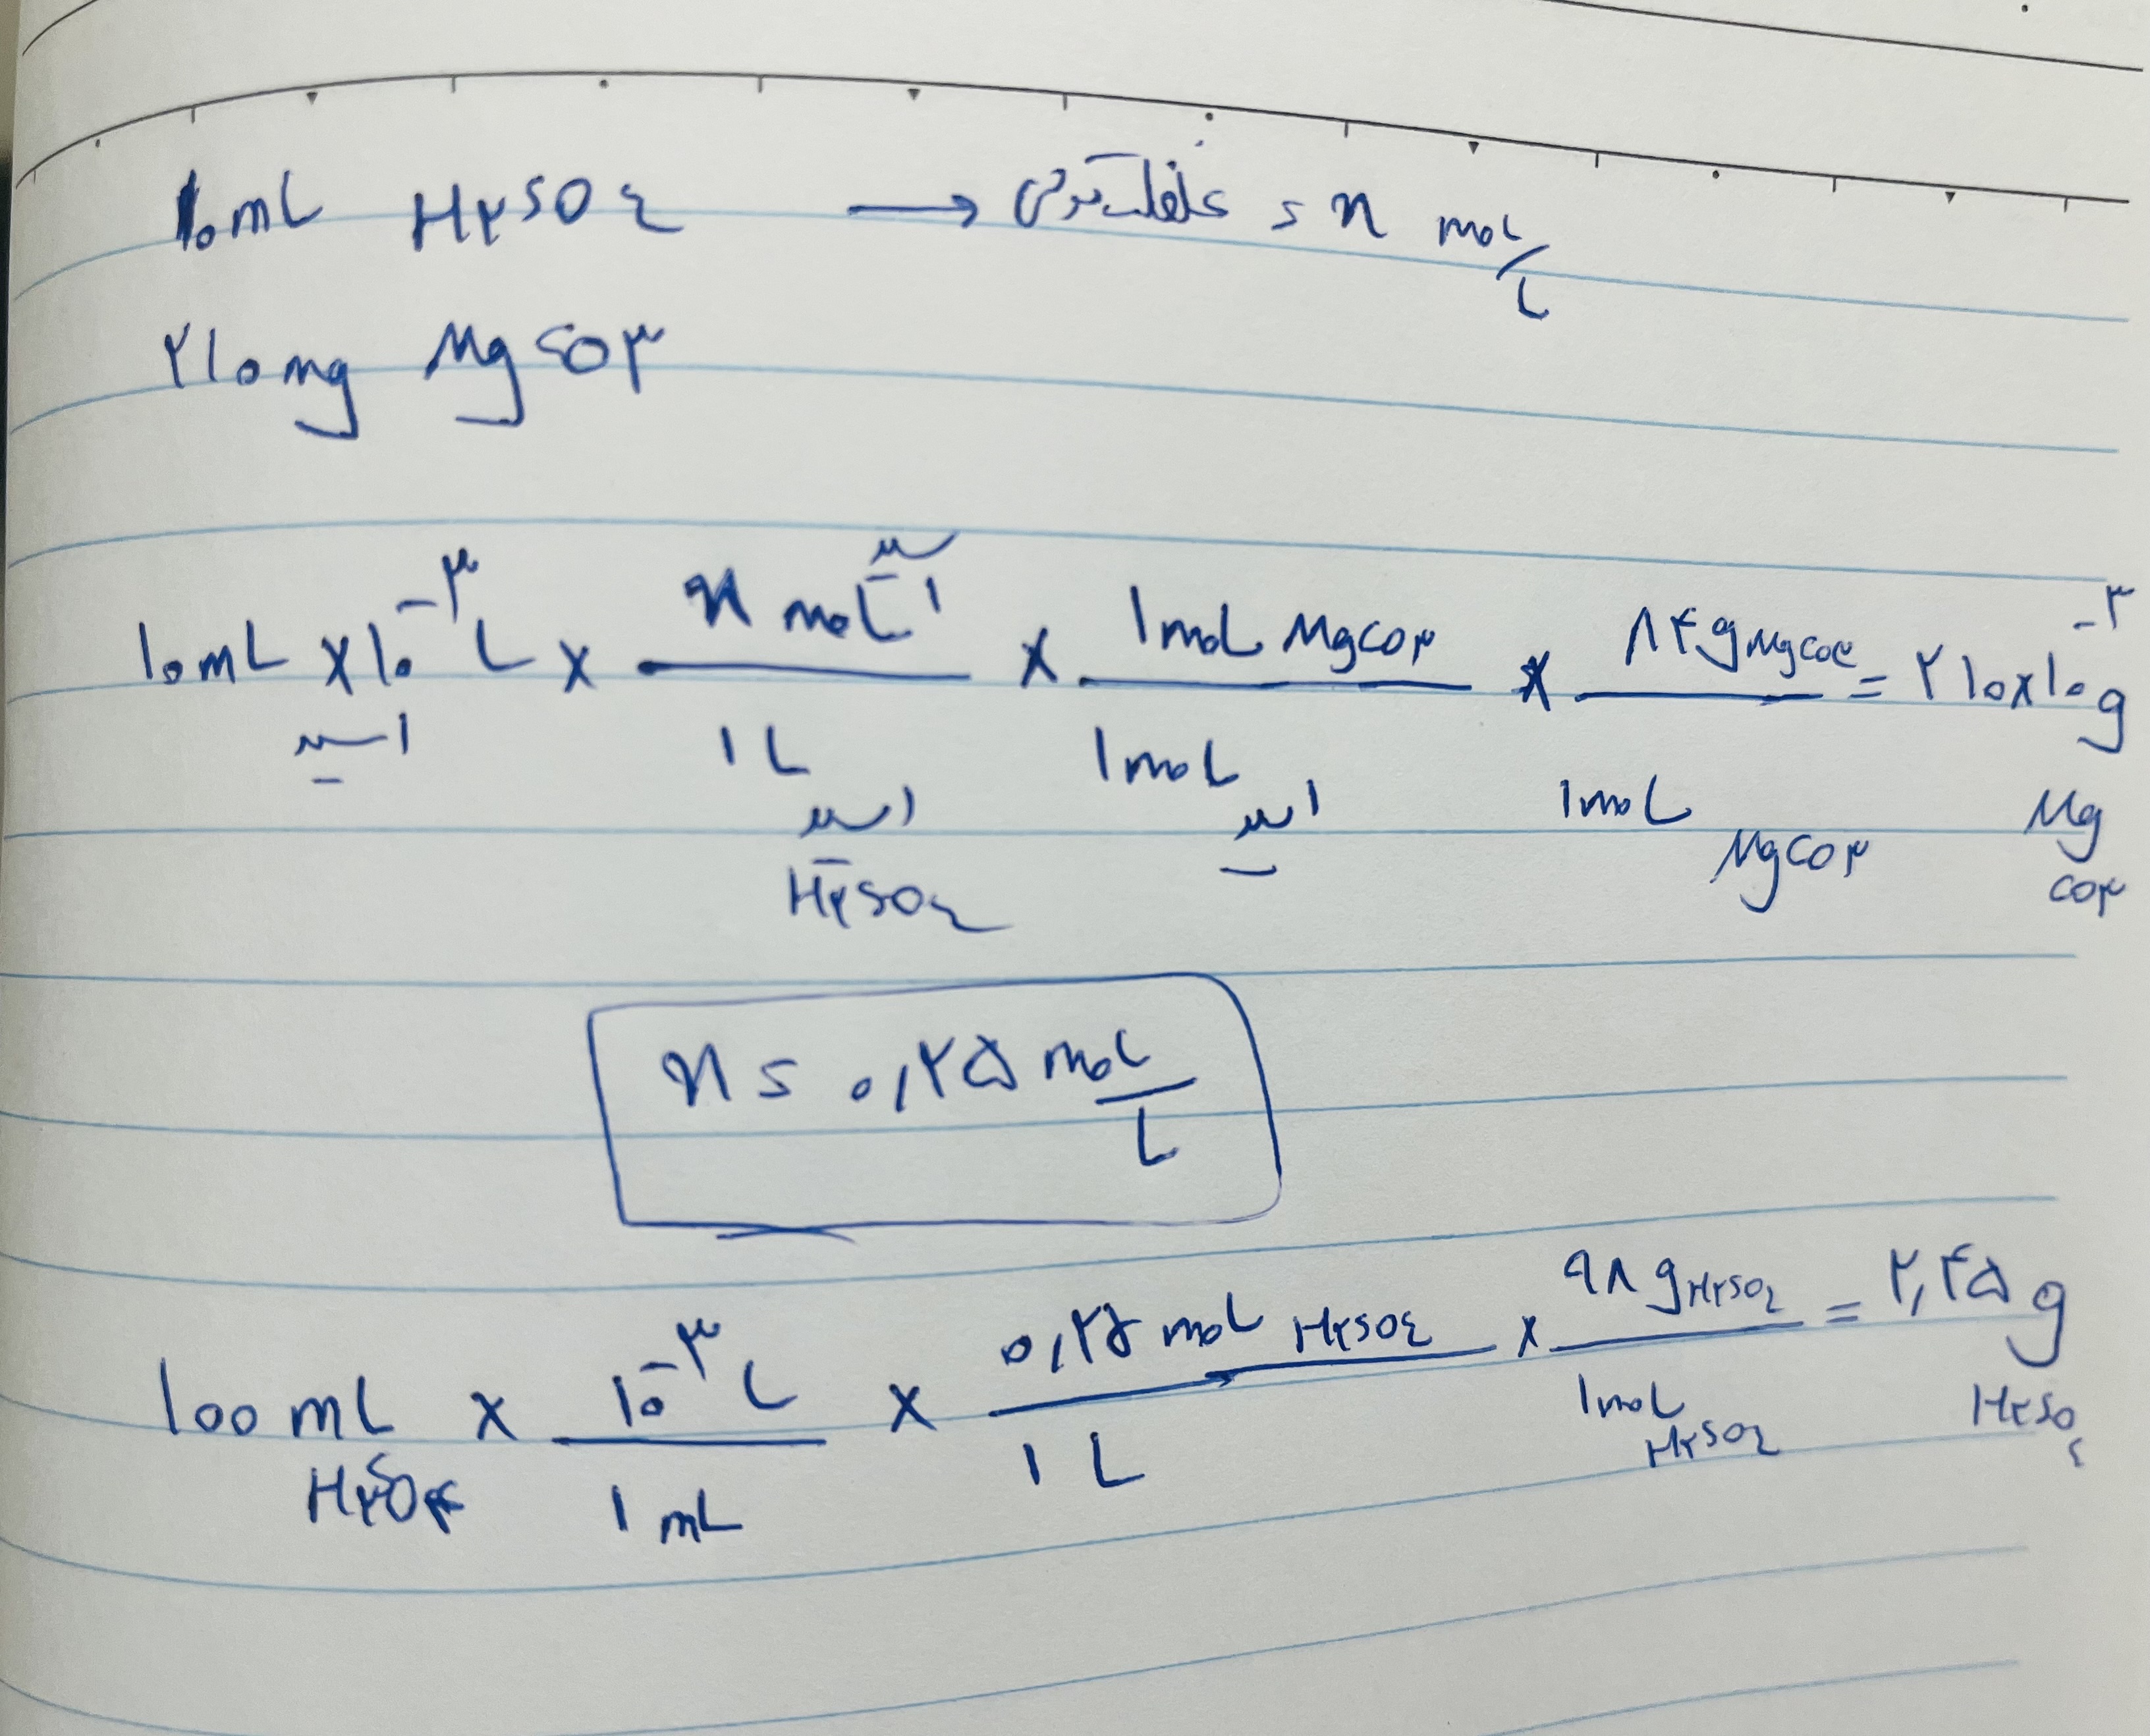 ۱۰mL H۲SO٤ → غلظت مولی = n mol/L
۲۱۰mg MgCO۳
۱۰mL × ۱۰^-۳ L اسید × n mol اسید / ۱L اسید H۲SO٤ × ۱mol MgCO۳ / ۱mol اسید × ۸۴g MgCO۳ / ۱mol MgCO۳ = ۲۱۰×۱۰^-۳ g MgCO۳
n = ۰,۲۵ mol/L
۱۰۰mL H۲SO۴ × ۱۰^-۳ L / ۱mL × ۰,۲۵ mol H۲SO٤ / ۱L × ۹۸g H۲SO٤ / ۱mol H۲SO٤ = ۲,۴۵g H۲SO٤